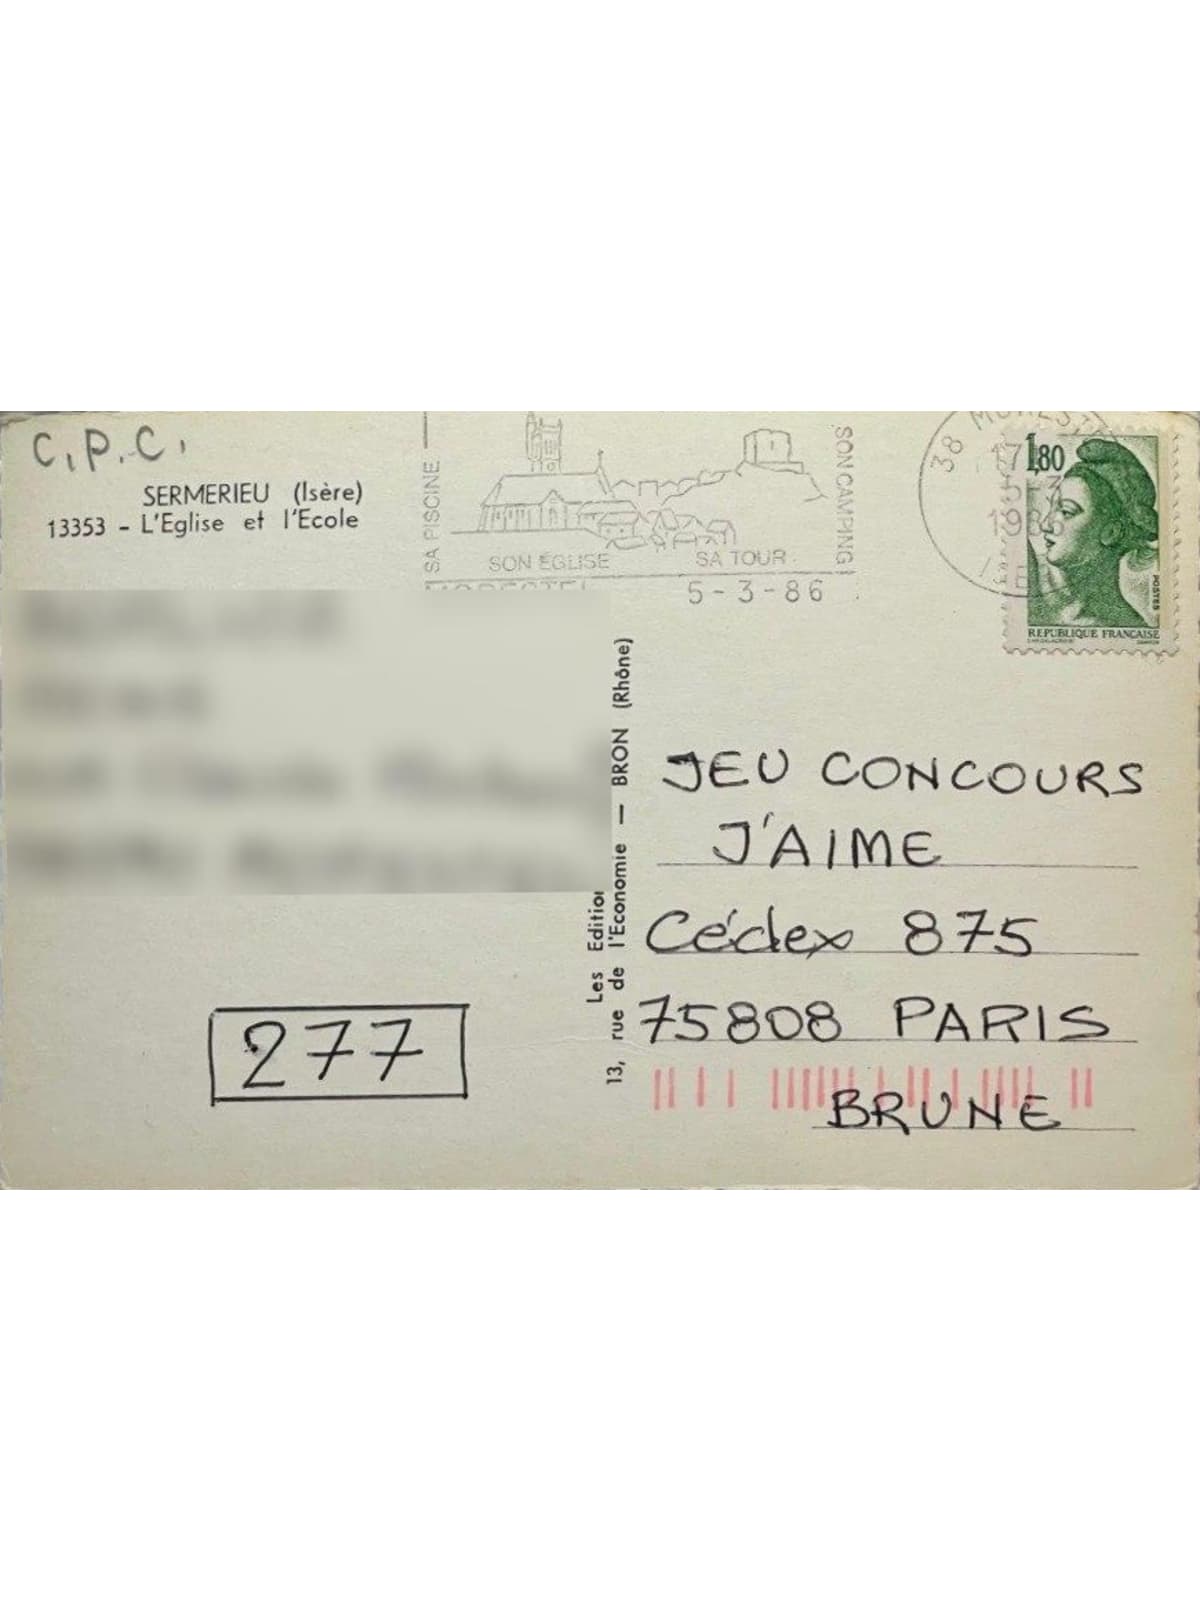 C.P.C.
SERMERIEU (Isère)
13353 - L'Eglise et l'Ecole
SA PISCINE
SON ÉGLISE
SA TOUR
SON CAMPING
MORESTEL
5-3-86
38 MOREST
17
5-3
1986
1,80
POSTES
REPUBLIQUE FRANCAISE
Les Editio
13, rue de l'Economie — BRON (Rhône)
JEU CONCOURS
J'AIME
Cédex 875
75808 PARIS
BRUNE
277